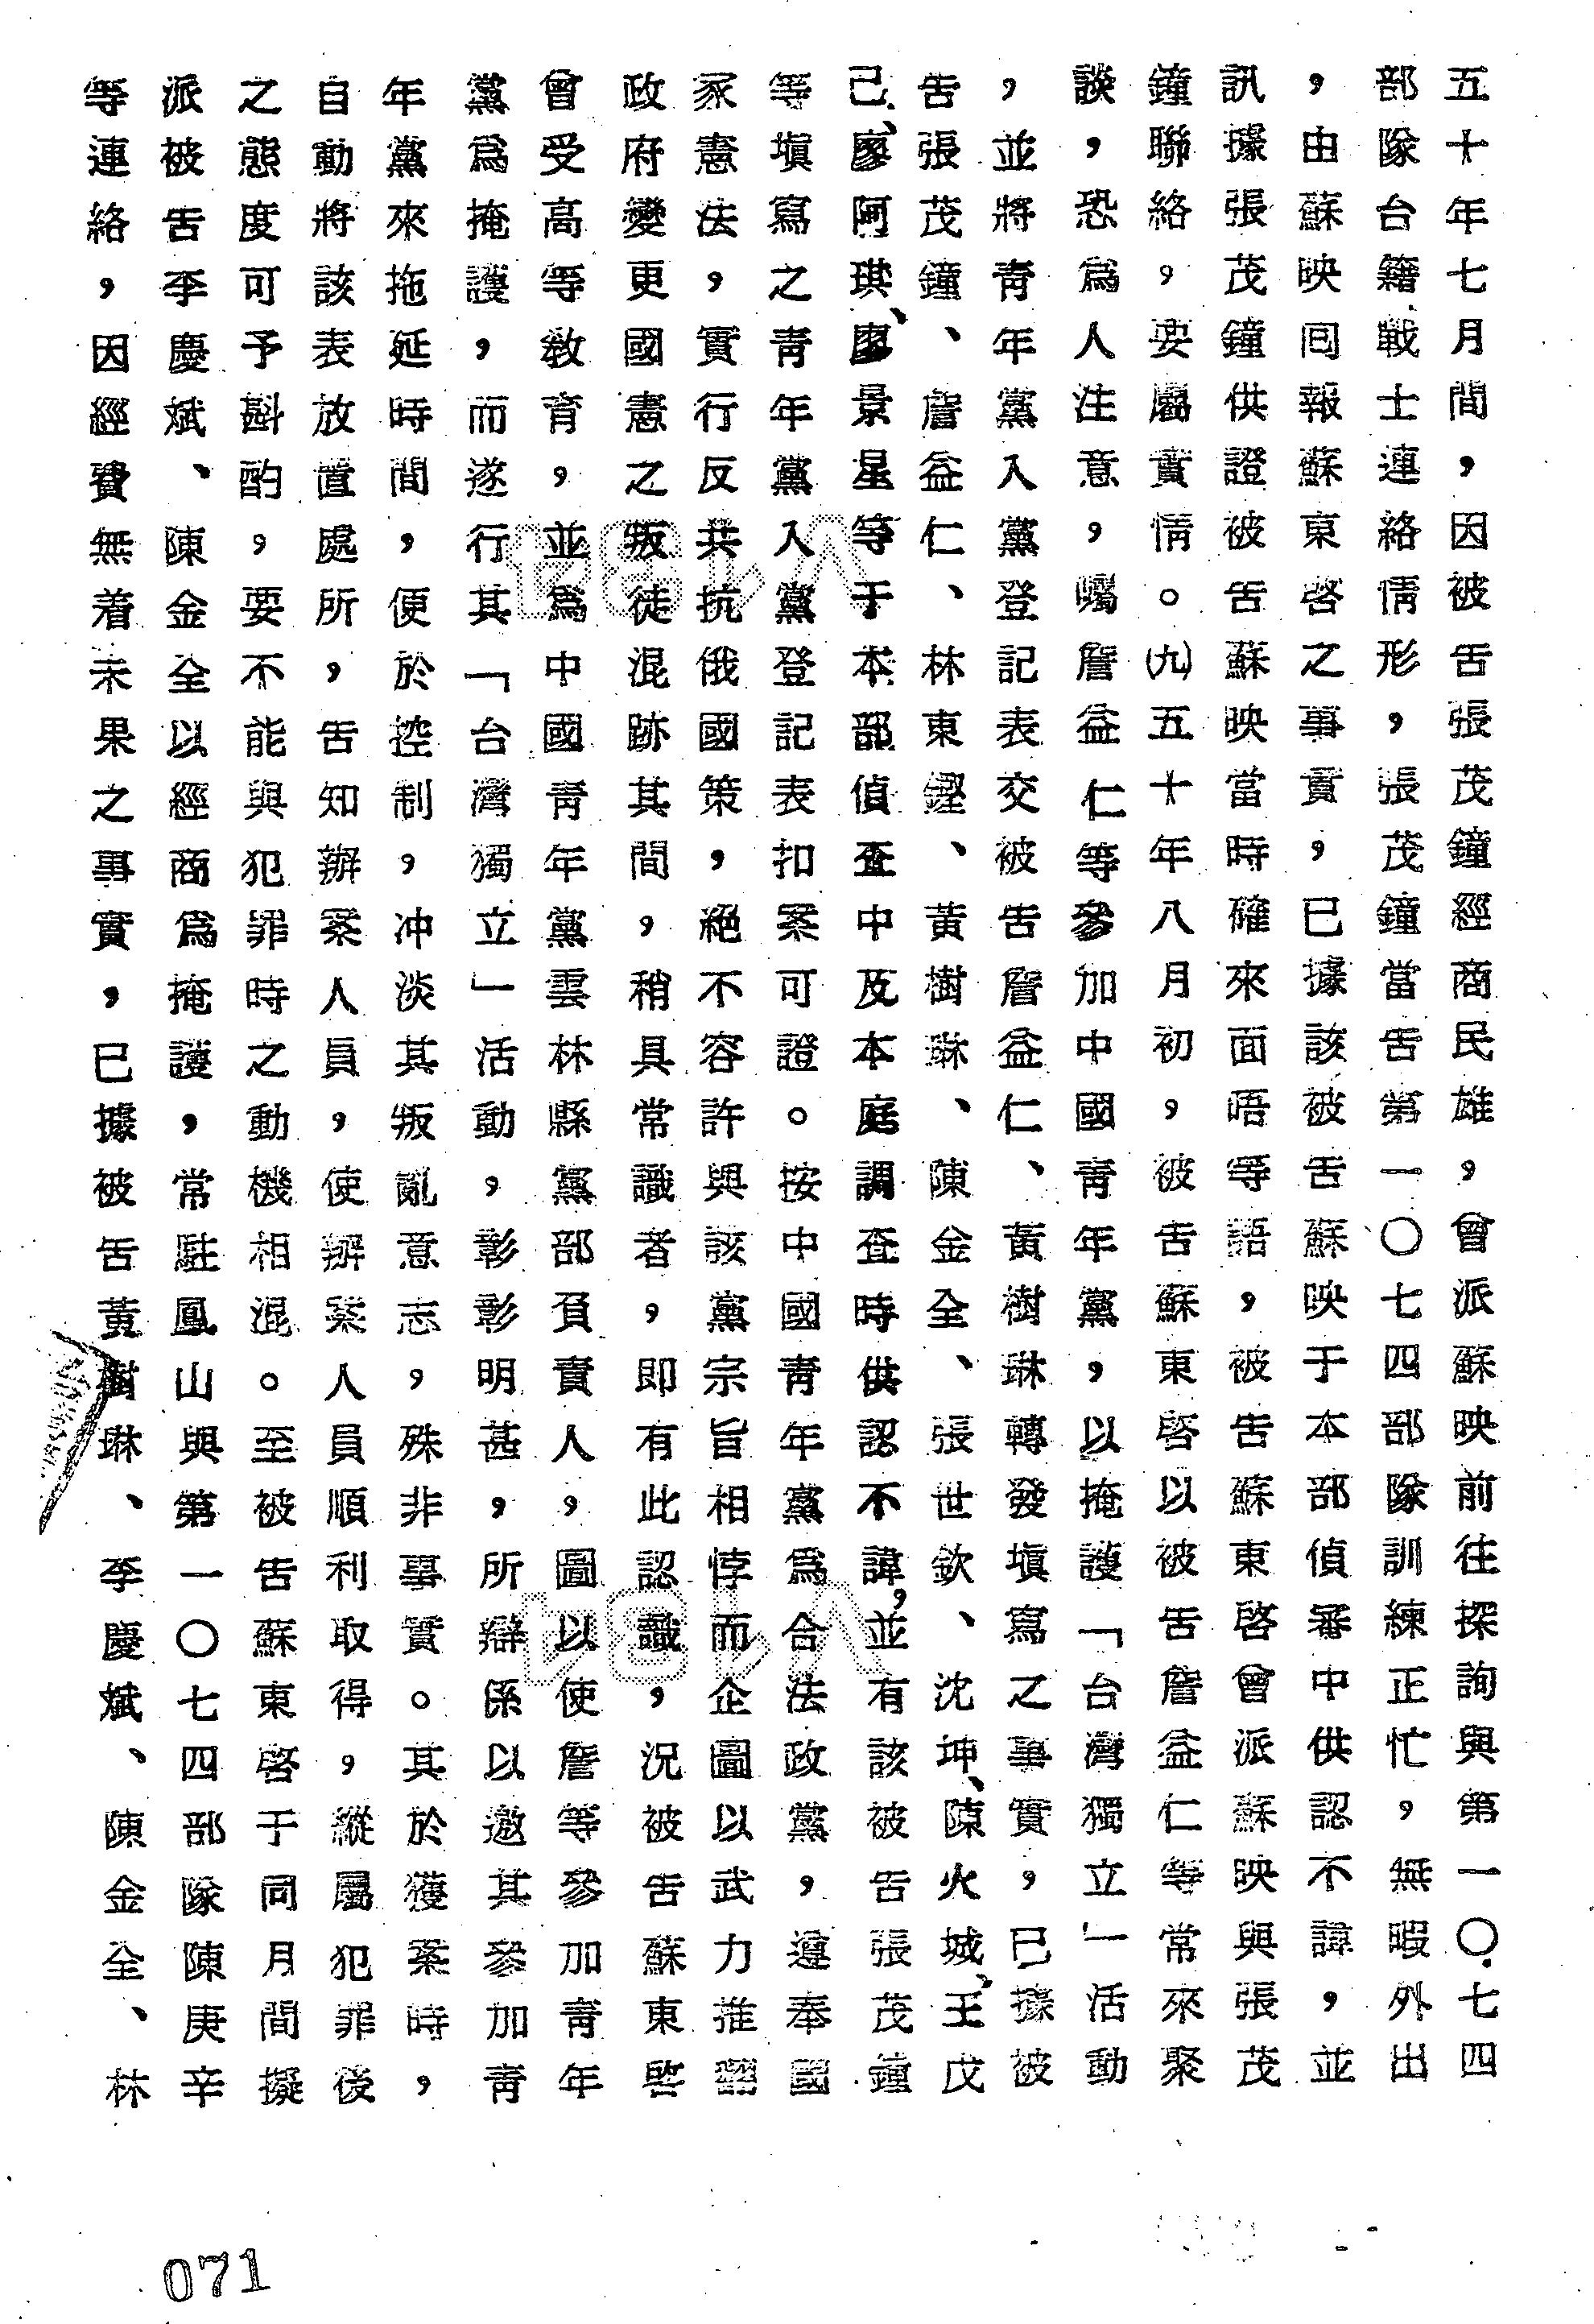 五十年七月間，因被告張茂鐘經商民雄，曾派蘇映前往探詢與第一〇七四
部隊台籍戰士連絡情形，張茂鐘當告第一〇七四部隊訓練正忙，無暇外出
，由蘇映囘報蘇東啓之事實，已據該被告蘇映于本部偵審中供認不諱，並
訊據張茂鐘供證被告蘇映當時確來面晤等語，被告蘇東啓曾派蘇映與張茂
鐘聯絡，要屬實情。㈨五十年八月初，被告蘇東啓以被告詹益仁等常來聚
談，恐爲人注意，囑詹益仁等參加中國青年黨，以掩護「台灣獨立」活動
，並將青年黨入黨登記表交被告詹益仁、黃樹琳轉發塡寫之事實，已據被
告張茂鐘、詹益仁、林東鏗、黃樹琳、陳金全、張世欽、沈坤、陳火城、王戊
己、廖阿琪、廖景星等于本部偵查中及本庭調查時供認不諱，並有該被告張茂鐘
等塡寫之青年黨入黨登記表扣案可證。按中國青年黨爲合法政黨，遵奉國
家憲法，實行反共抗俄國策，絕不容許與該黨宗旨相悖而企圖以武力推翻
政府變更國憲之叛徒混跡其間，稍具常識者，即有此認識，況被告蘇東啓
曾受高等教育，並爲中國青年黨雲林縣黨部負責人，圖以使詹等參加青年
黨爲掩護，而遂行其「台灣獨立」活動，彰彰明甚，所辯係以邀其參加青
年黨來拖延時間，便於控制，冲淡其叛亂意志，殊非事實。其於獲案時，
自動將該表放置處所，告知辦案人員，使辦案人員順利取得，縱屬犯罪後
之態度可予斟酌，要不能與犯罪時之動機相混。至被告蘇東啓于同月間擬
派被告李慶斌、陳金全以經商爲掩護，常駐鳳山與第一〇七四部隊陳庚辛
等連絡，因經費無着未果之事實，已據被告黃樹琳、李慶斌、陳金全、林
071